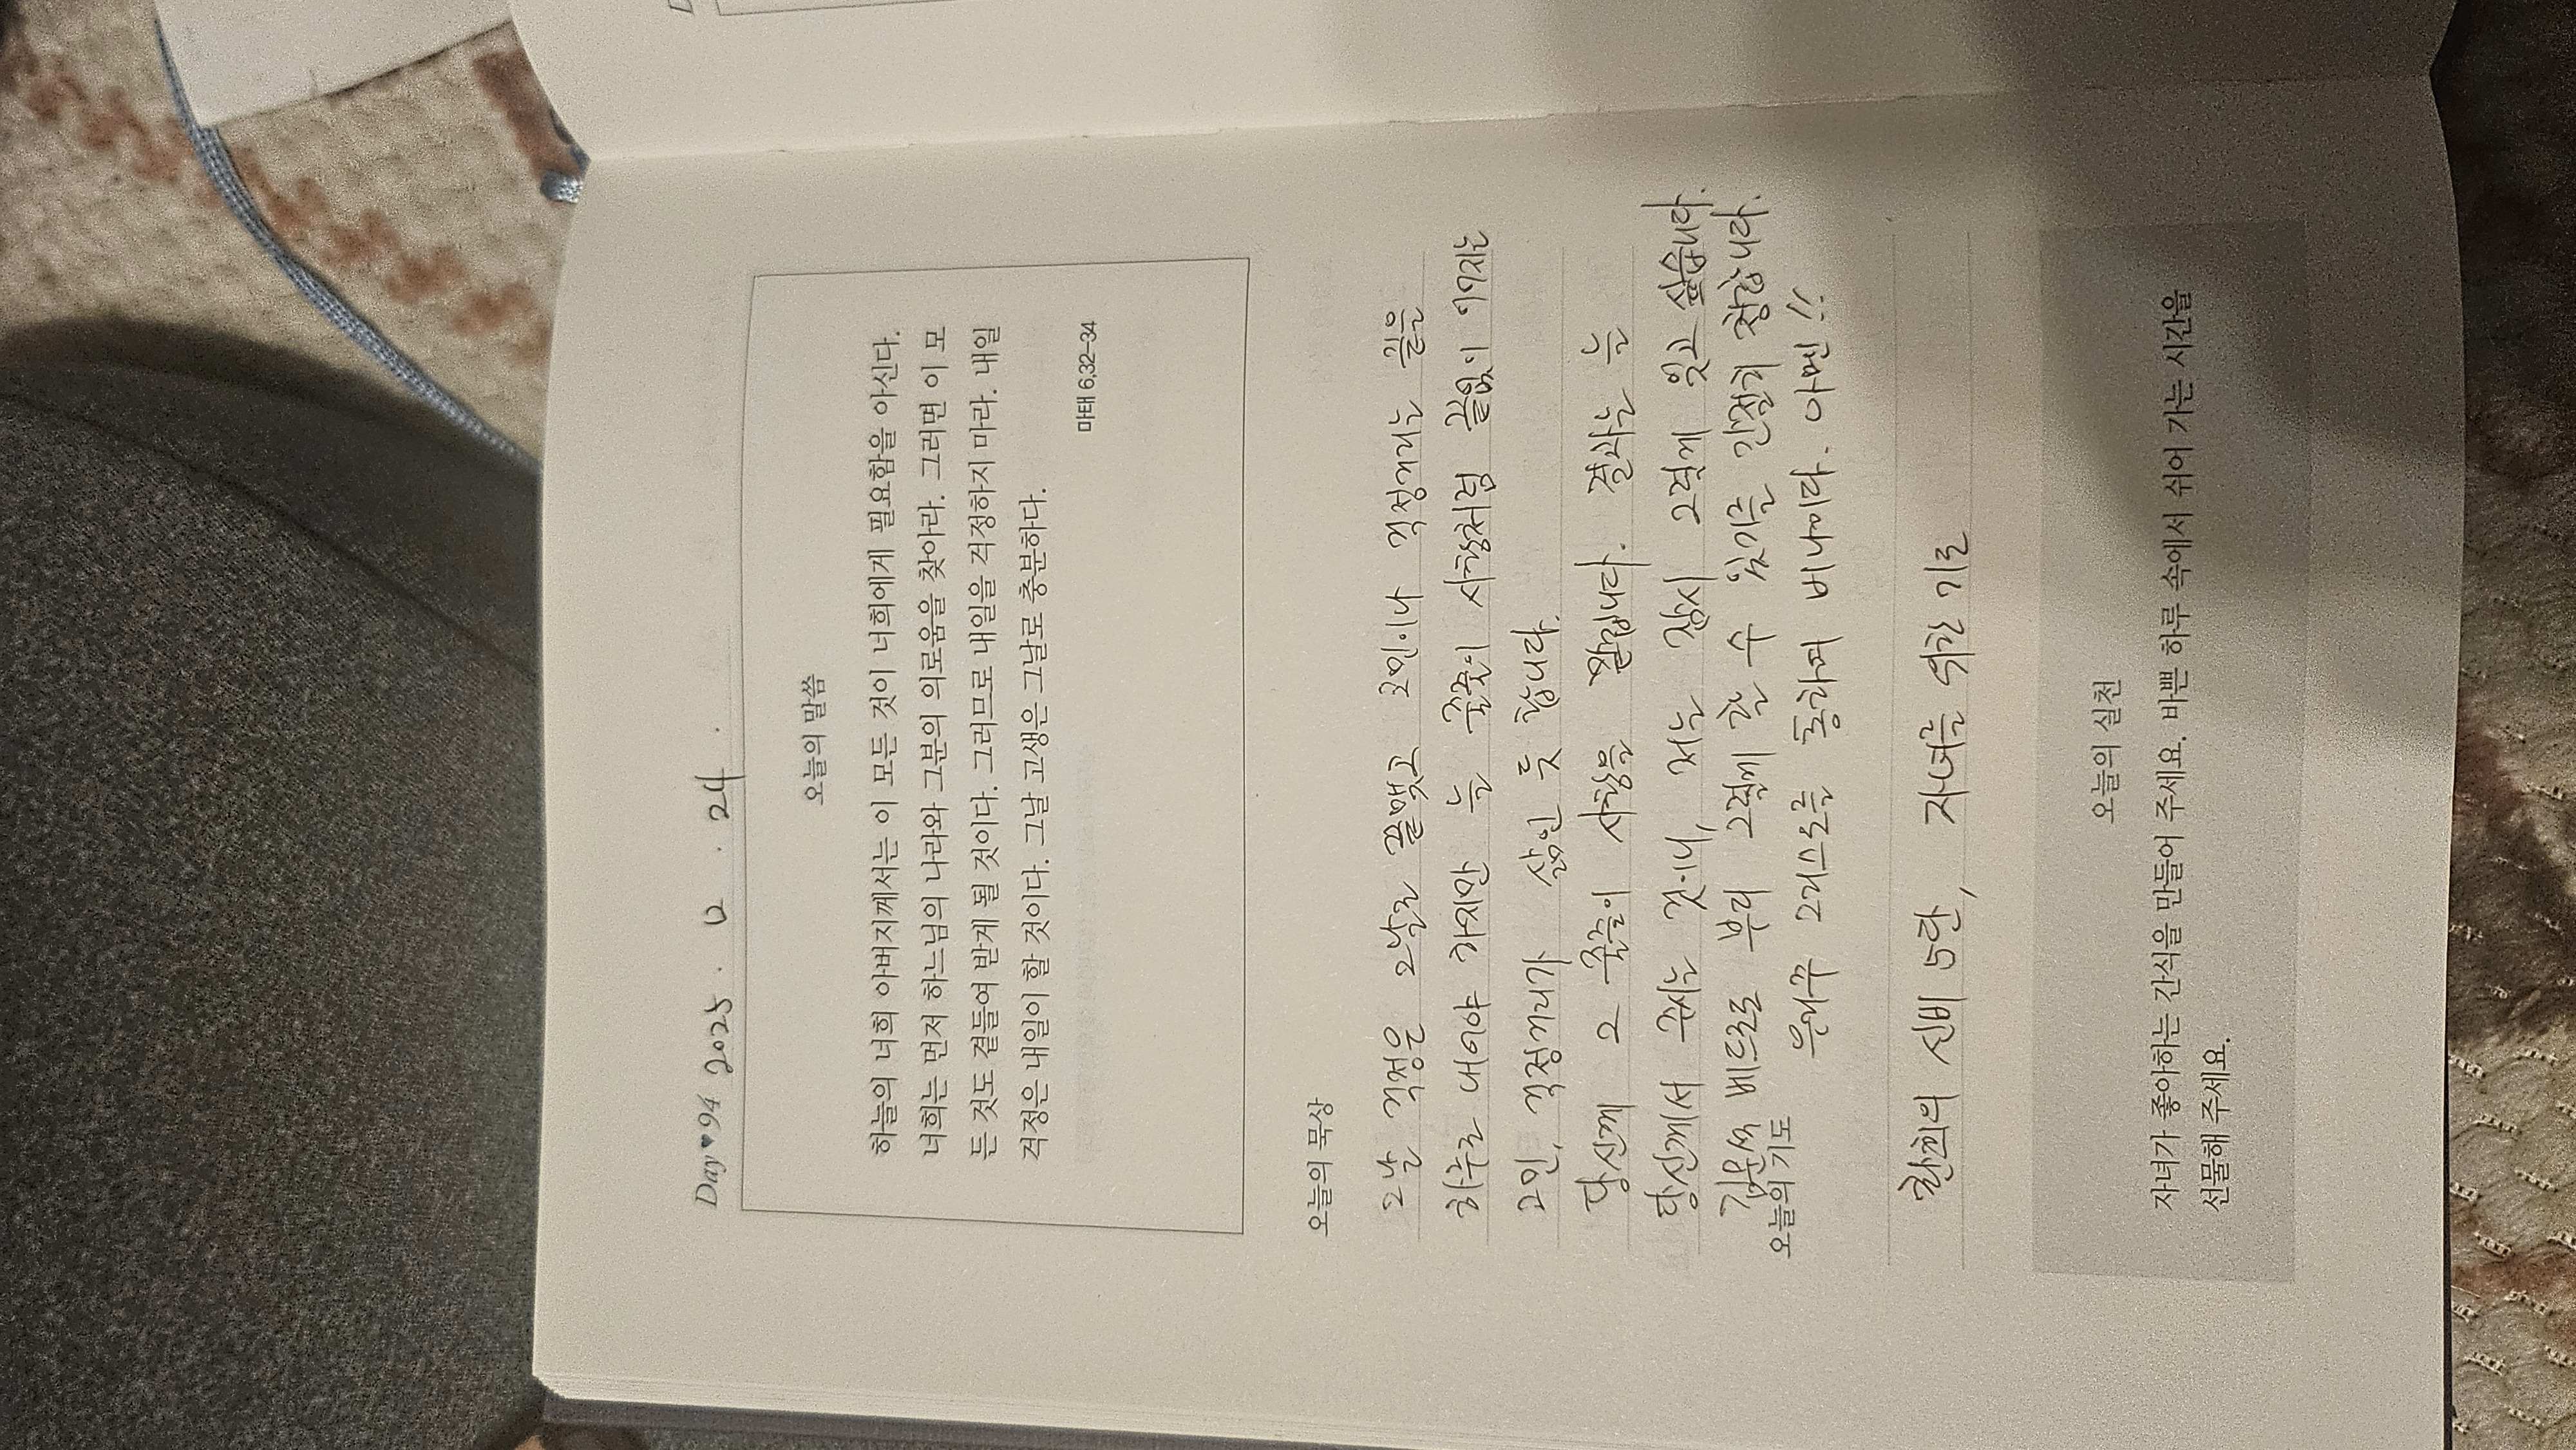 Day ♥ 94 2025 . 12 . 24 .
오늘의 말씀
하늘의 너희 아버지께서는 이 모든 것이 너희에게 필요함을 아신다.
너희는 먼저 하느님의 나라와 그분의 의로움을 찾아라. 그러면 이 모
든 것도 곁들여 받게 될 것이다. 그러므로 내일을 걱정하지 마라. 내일
걱정은 내일이 할 것이다. 그날 고생은 그날로 충분하다.
마태 6,32–34
오늘의 묵상
그날 걱정은 그날로 끝맺고 고민이나 걱정거리는 짊은
하루로 내어야 하지만 늘 줄줄이 사탕처럼 끝없이 이어지는
고민, 걱정거리가 삶인 듯 합니다.
당신께 그 줄줄이 사탕을 맡깁니다. 결과는 늘
당신께서 주시는 것이니, 저는 잠시 그렇게 잊고 싶습니다.
베드로도 부디 그렇게 할 수 있기를 간절히 청합니다.
우리 주 그리스도를 통하여 비나이다. 아멘!!
오늘의 기도
환희의 신비 5단, 자녀를 위한 기도
오늘의 실천
자녀가 좋아하는 간식을 만들어 주세요. 바쁜 하루 속에서 쉬어 가는 시간을
선물해 주세요.